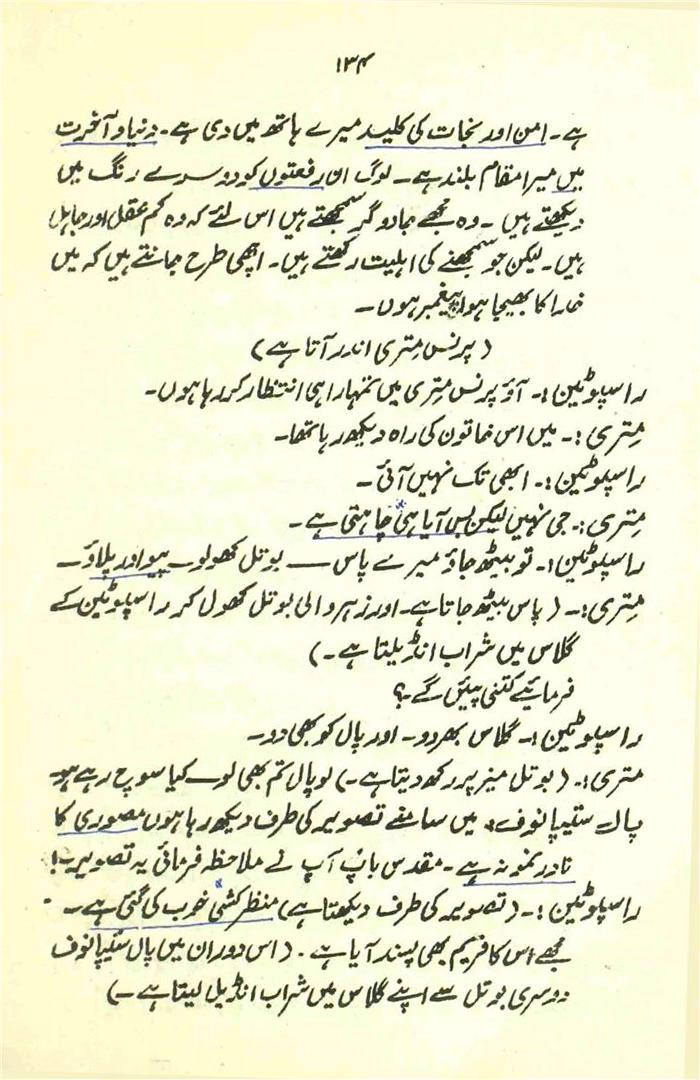 ۱۳۴
ہے۔ امن اور نجات کی کلید میرے ہاتھ میں دی ہے۔ دنیا و آخرت
میں میرا مقام بلند ہے۔ لوگ ان رفعتوں کو دوسرے رنگ میں
دیکھتے ہیں۔ وہ مجھے جادو گر سمجھتے ہیں اس لئے کہ وہ کم عقل اور جاہل
ہیں۔ لیکن جو سمجھنے کی اہلیت رکھتے ہیں۔ اچھی طرح جانتے ہیں کہ میں
خدا کا بھیجا ہوا پیغمبر ہوں۔
(پرنس متری اندر آتا ہے)
راسپوٹین:۔ آؤ پرنس متری میں تمہارا ہی انتظار کر رہا ہوں۔
مِتری:۔ میں اس خاتون کی راہ دیکھ رہا تھا۔
راسپوٹین:۔ ابھی تک نہیں آئی۔
مِتری:۔ جی نہیں لیکن بس آیا ہی چاہتی ہے۔
راسپوٹین:۔ تو بیٹھ جاؤ میرے پاس ــــ بوتل کھولو۔ پیو اور پلاؤ۔
مِتری:۔ (پاس بیٹھ جاتا ہے۔ اور زہر والی بوتل کھول کر راسپوٹین کے
گلاس میں شراب انڈیلتا ہے۔)
فرمائیے کتنی پیئں گے۔؟
راسپوٹین:۔ گلاس بھر دو۔ اور پال کو بھی دو۔
متری:۔ (بوتل میز پر رکھ دیتا ہے۔) لو پال تم بھی لو۔ کیا سوچ رہے ہو۔
پال ستیپانوف۔ میں سامنے تصویر کی طرف دیکھ رہا ہوں مصوری کا
نادر نمونہ ہے۔ مقدس باپ آپ نے ملاحظہ فرمائی یہ تصویر۔!
راسپوٹین:۔ (تصویر کی طرف دیکھتا ہے) منظر کشی خوب کی گئی ہے۔
مجھے اس کا فریم بھی پسند آیا ہے۔ (اس دوران میں پال ستیپانوف
دوسری بوتل سے اپنے گلاس میں شراب انڈیل لیتا ہے۔)